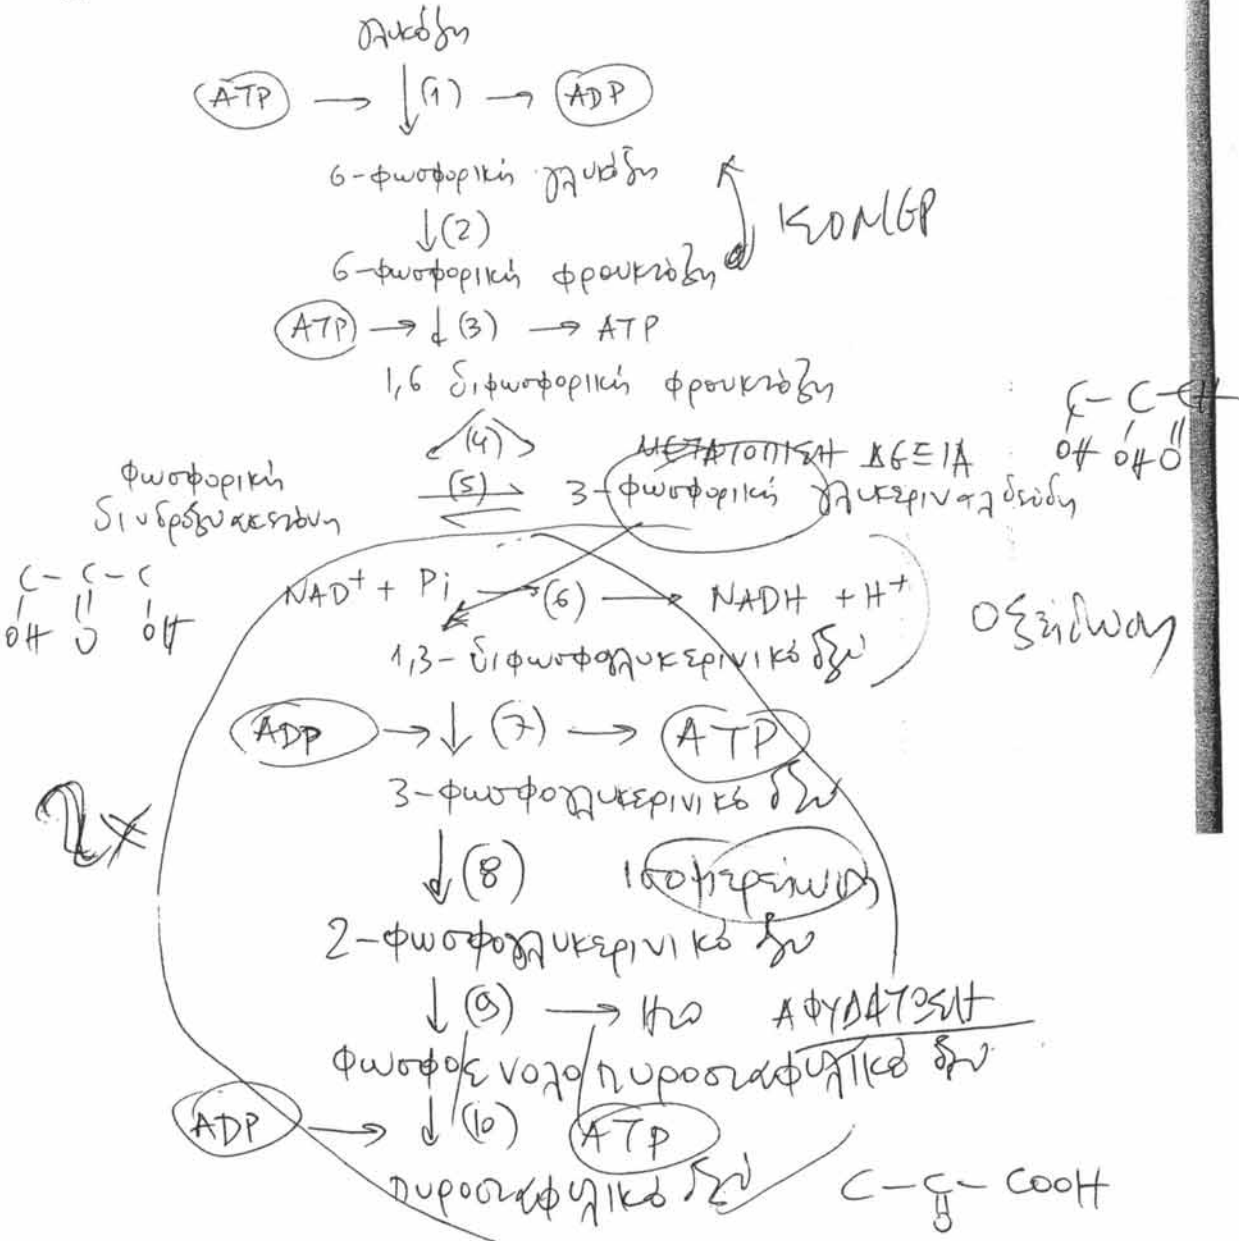 γλυκόζη
ATP → ↓ (1) → ADP
6-φωσφορική γλυκόζη
↓ (2)
6-φωσφορική φρουκτόζη
ATP → ↓ (3) → ATP
1,6 διφωσφορική φρουκτόζη
C - C - CH
OH OH O
(4)
ΜΕΤΑΤΟΠΙΣΗ ΔΕΞΙΑ
φωσφορική
διυδροξυακετόνη
(5)
3-φωσφορική γλυκεριναλδεΰδη
C - C - C
OH O OH
NAD+ + Pi → (6) → NADH + H+
Οξείδωση
1,3-διφωσφογλυκερινικό οξύ
ADP → ↓ (7) → ATP
3-φωσφογλυκερινικό οξύ
2x
↓ (8) Ισομερείωση
2-φωσφογλυκερινικό οξύ
↓ (9) → H2O ΑΦΥΔΑΤΩΣΗ
Φωσφοενολοπυροσταφυλικό οξύ
ADP → ↓ (10) ATP
πυροσταφυλικό οξύ
C - C - COOH
O